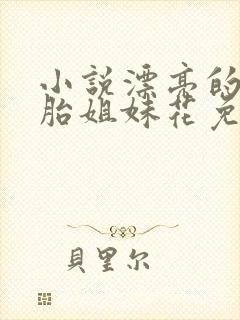 小說漂亮的
胎姐妹花免
貝里尔